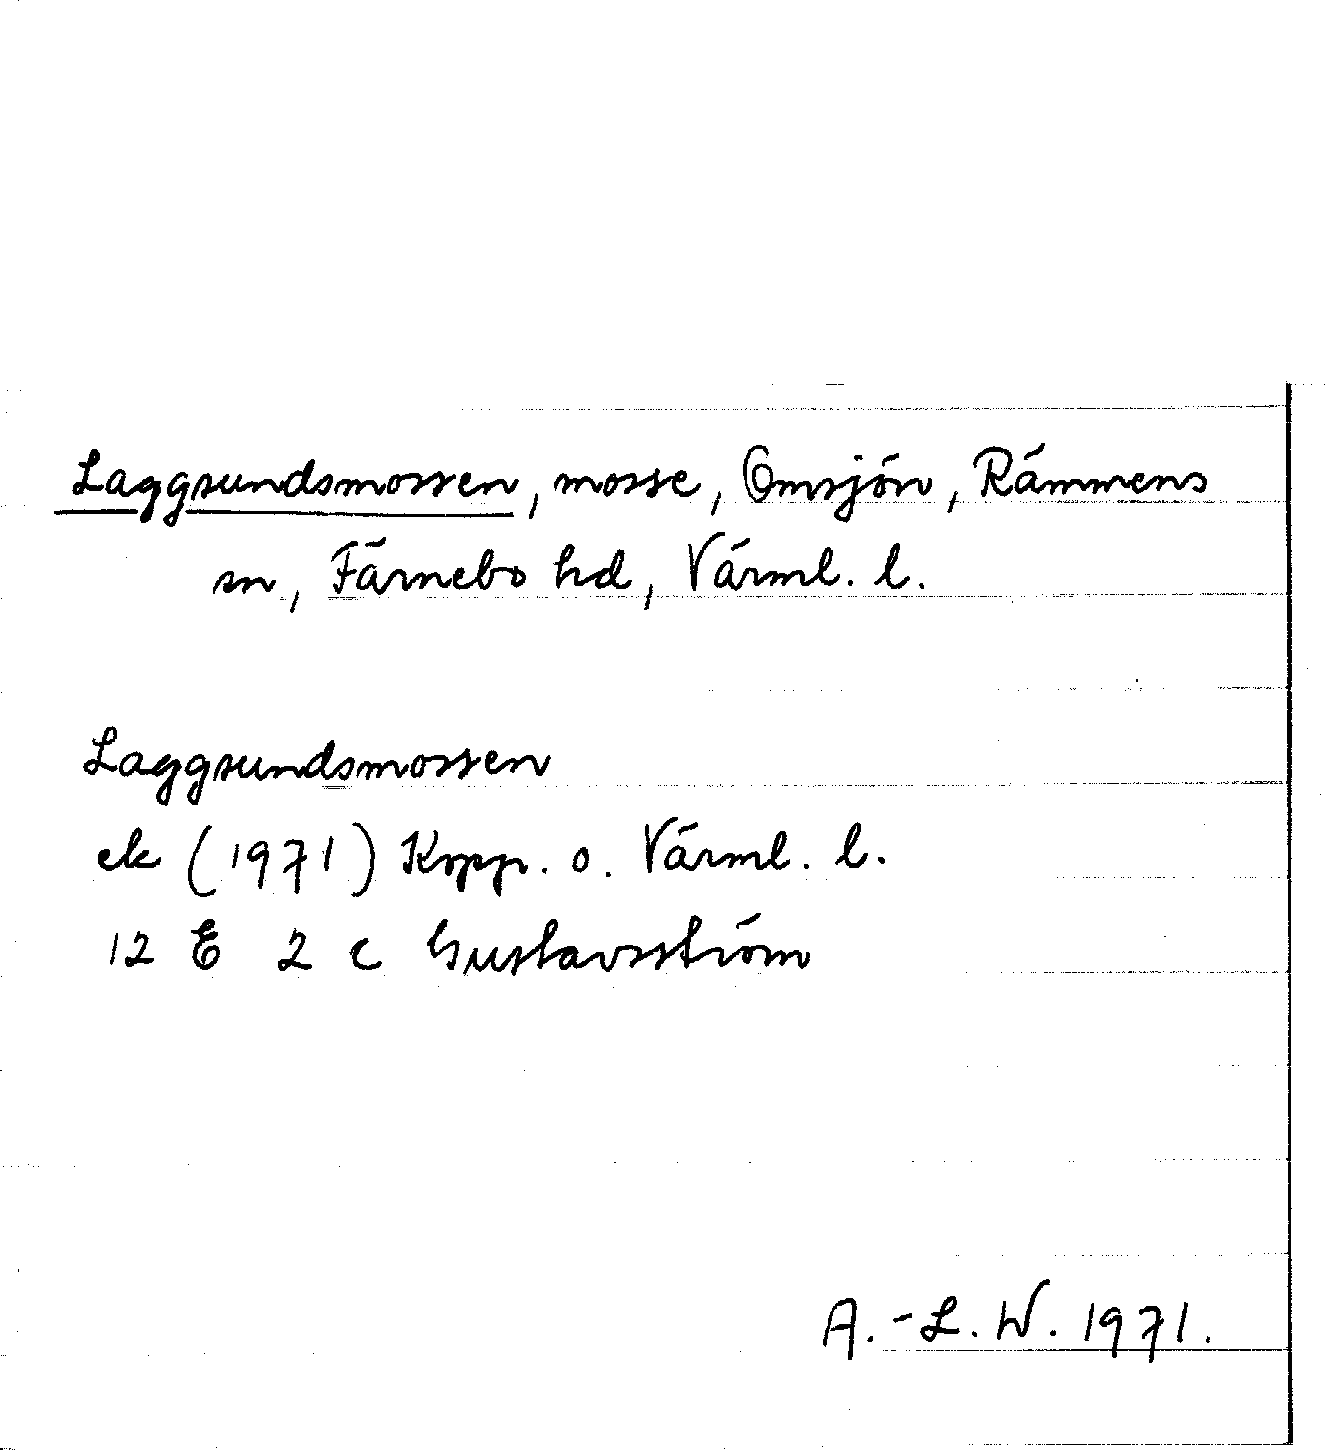 Laggsundsmossen, mosse, Omsjön, Rämmens
sn, Färnebo hd, Värml. l.
Laggsundsmossen
ek (1971) Kopp. o. Värml. l.
12 E 2 c Gustavsström
A.-L. W. 1971.